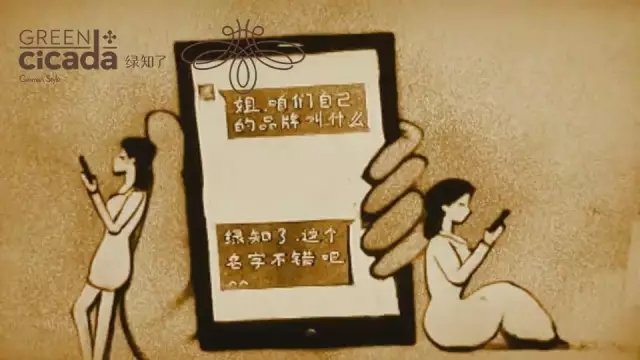 GREEN
cicada 绿知了
German Style
姐,咱们自己
的品牌叫什么
绿知了,这个
名字不错吧
^^